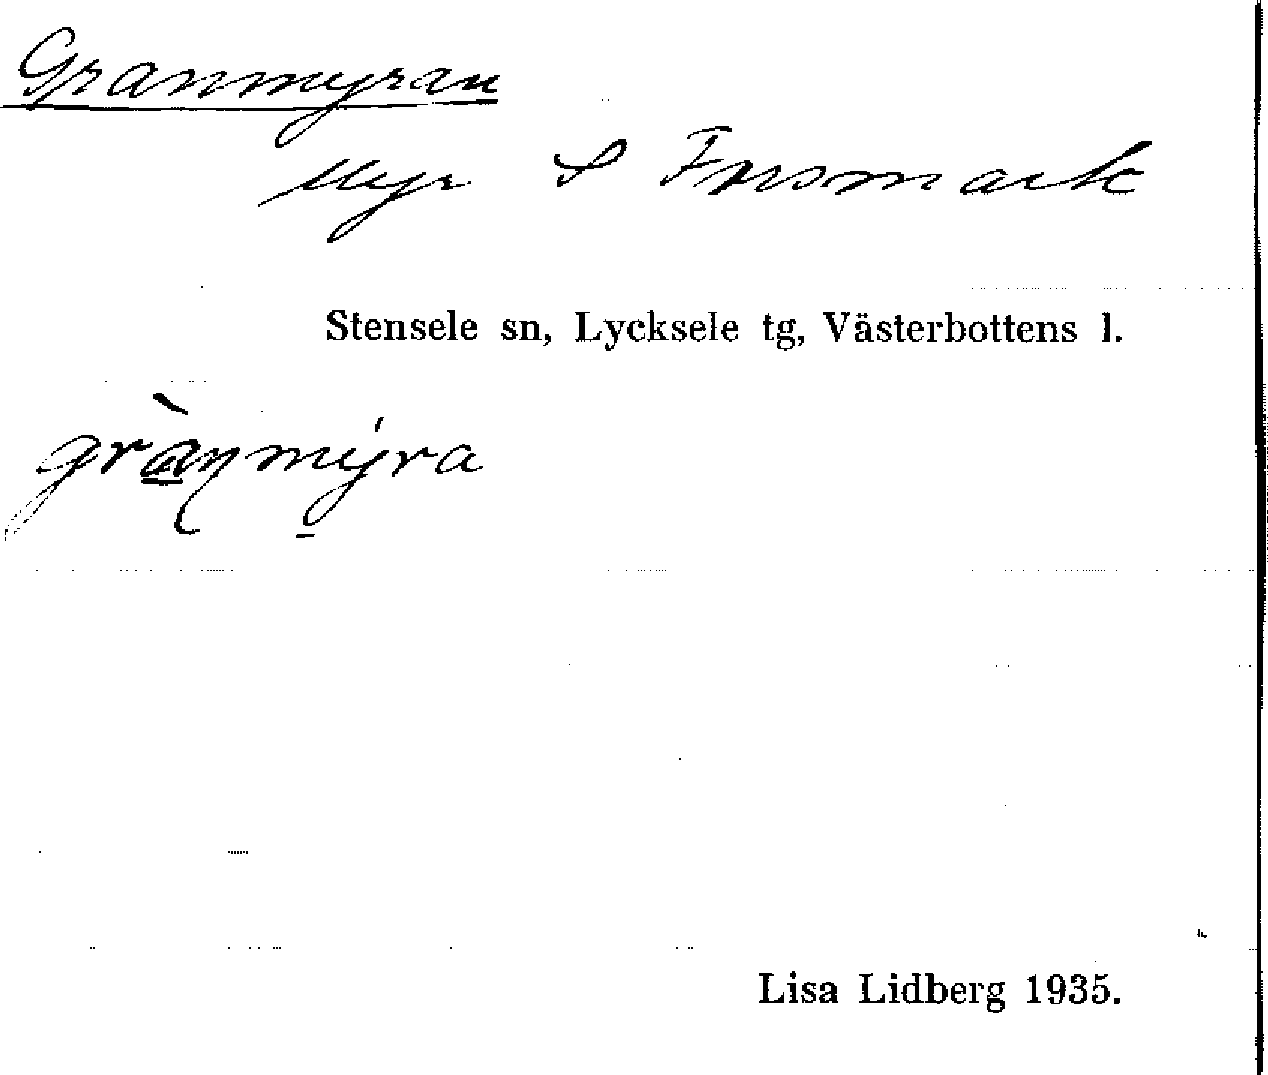 Granmyran
Myr S Forsmark
Stensele sn, Lycksele tg, Västerbottens l.
gràn̩mýra
Lisa Lidberg 1935.